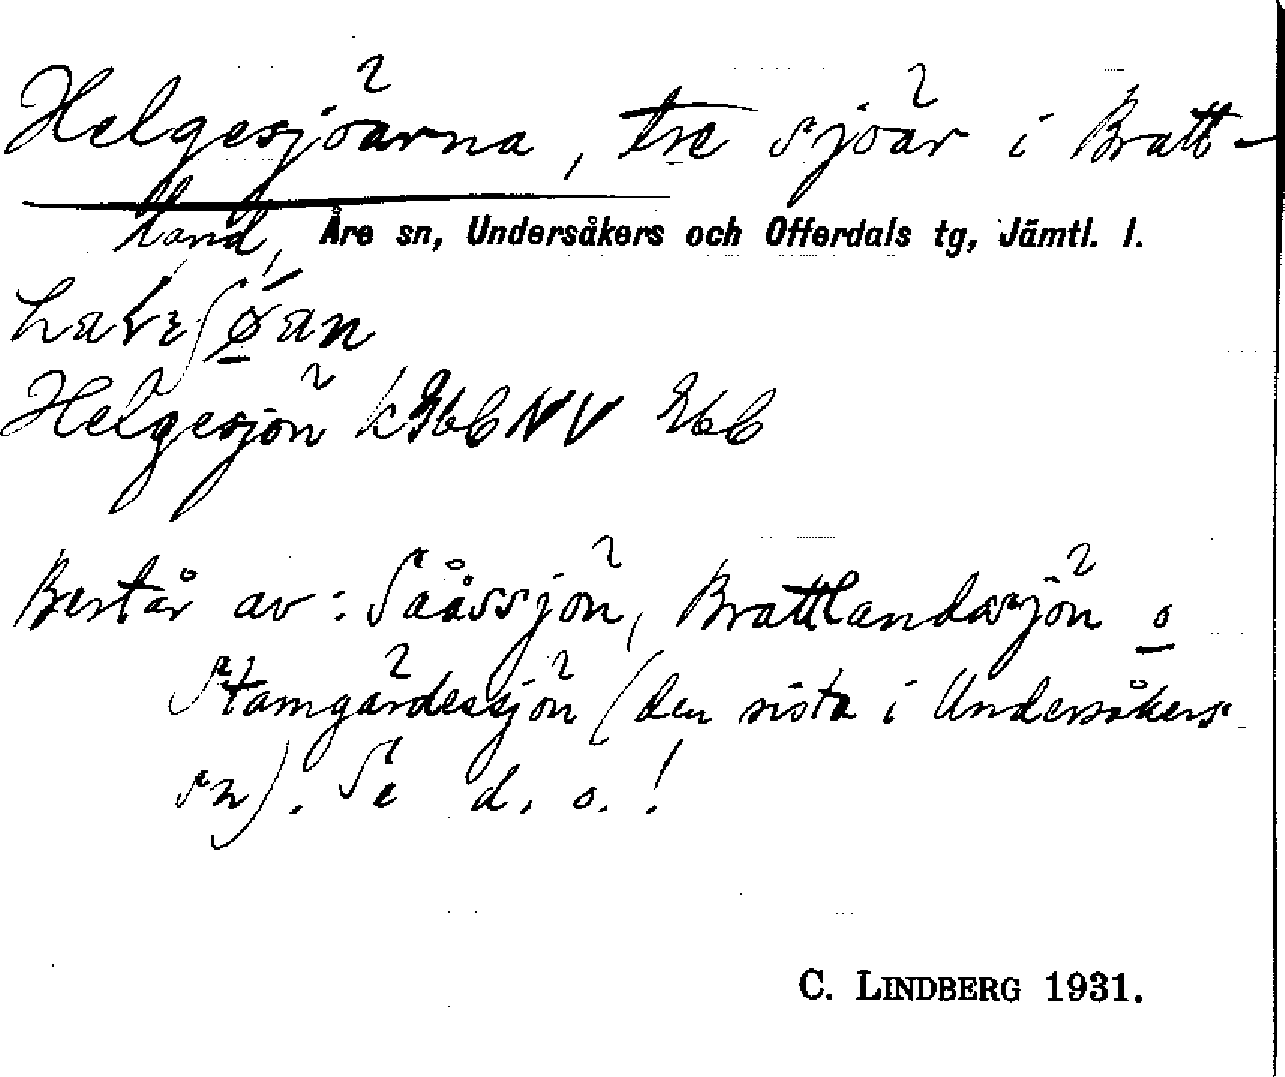 Helgesjöarna, tre sjöar i Bratt-
land, Åre sn, Undersåkers och Offerdals tg, Jämtl. l.
Helgesjön k Gbl NV Gbl
Består av: Saåssjön, Brattlandssjön o
Stamgårdessjön (den sista i Undersåkers
sn). Se d. o.!
C. LINDBERG 1931.